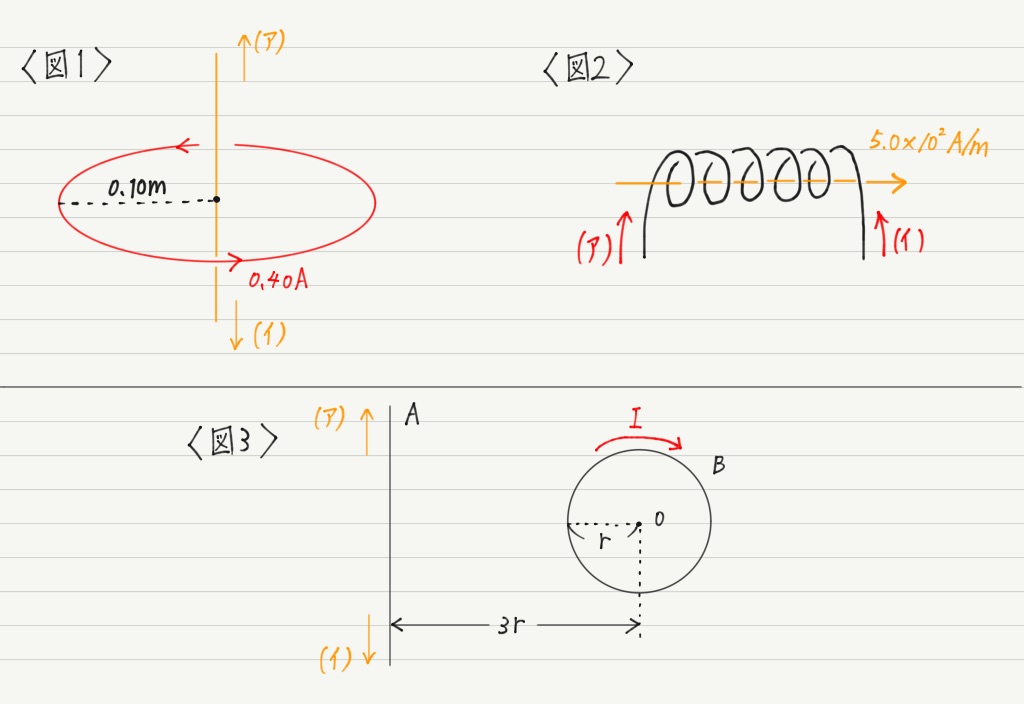 〈図1〉
(ア)
0.10m
0.40A
(イ)
〈図2〉
5.0×10² A/m
(ア)
(イ)
〈図3〉
(ア)
A
I
B
O
r
3r
(イ)